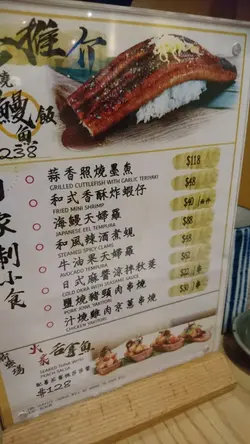 推介
燒
鰻魚飯
238
蒜香照燒墨魚 $118
GRILLED CUTTLEFISH WITH GARLIC TERIYAKI
和式香酥炸蝦仔 $48
FRIED MINI SHRIMP
海鰻天婦羅
JAPANESE EEL TEMPURA
和風辣酒煮蜆 $88
STEAMED SPICY CLAMS
牛油果天婦羅
AVOCADO TEMPURA
日式麻醬涼拌秋葵
COLD OKRA WITH SESAME SAUCE
鹽燒豬頸肉串燒
PORK JOWL YAKITORI
汁燒雞肉京葱串燒 $30
CHICKEN YAKITORI
制小食
火炙吞拿魚
SEARED TUNA WITH
PEACH SALSA
$128